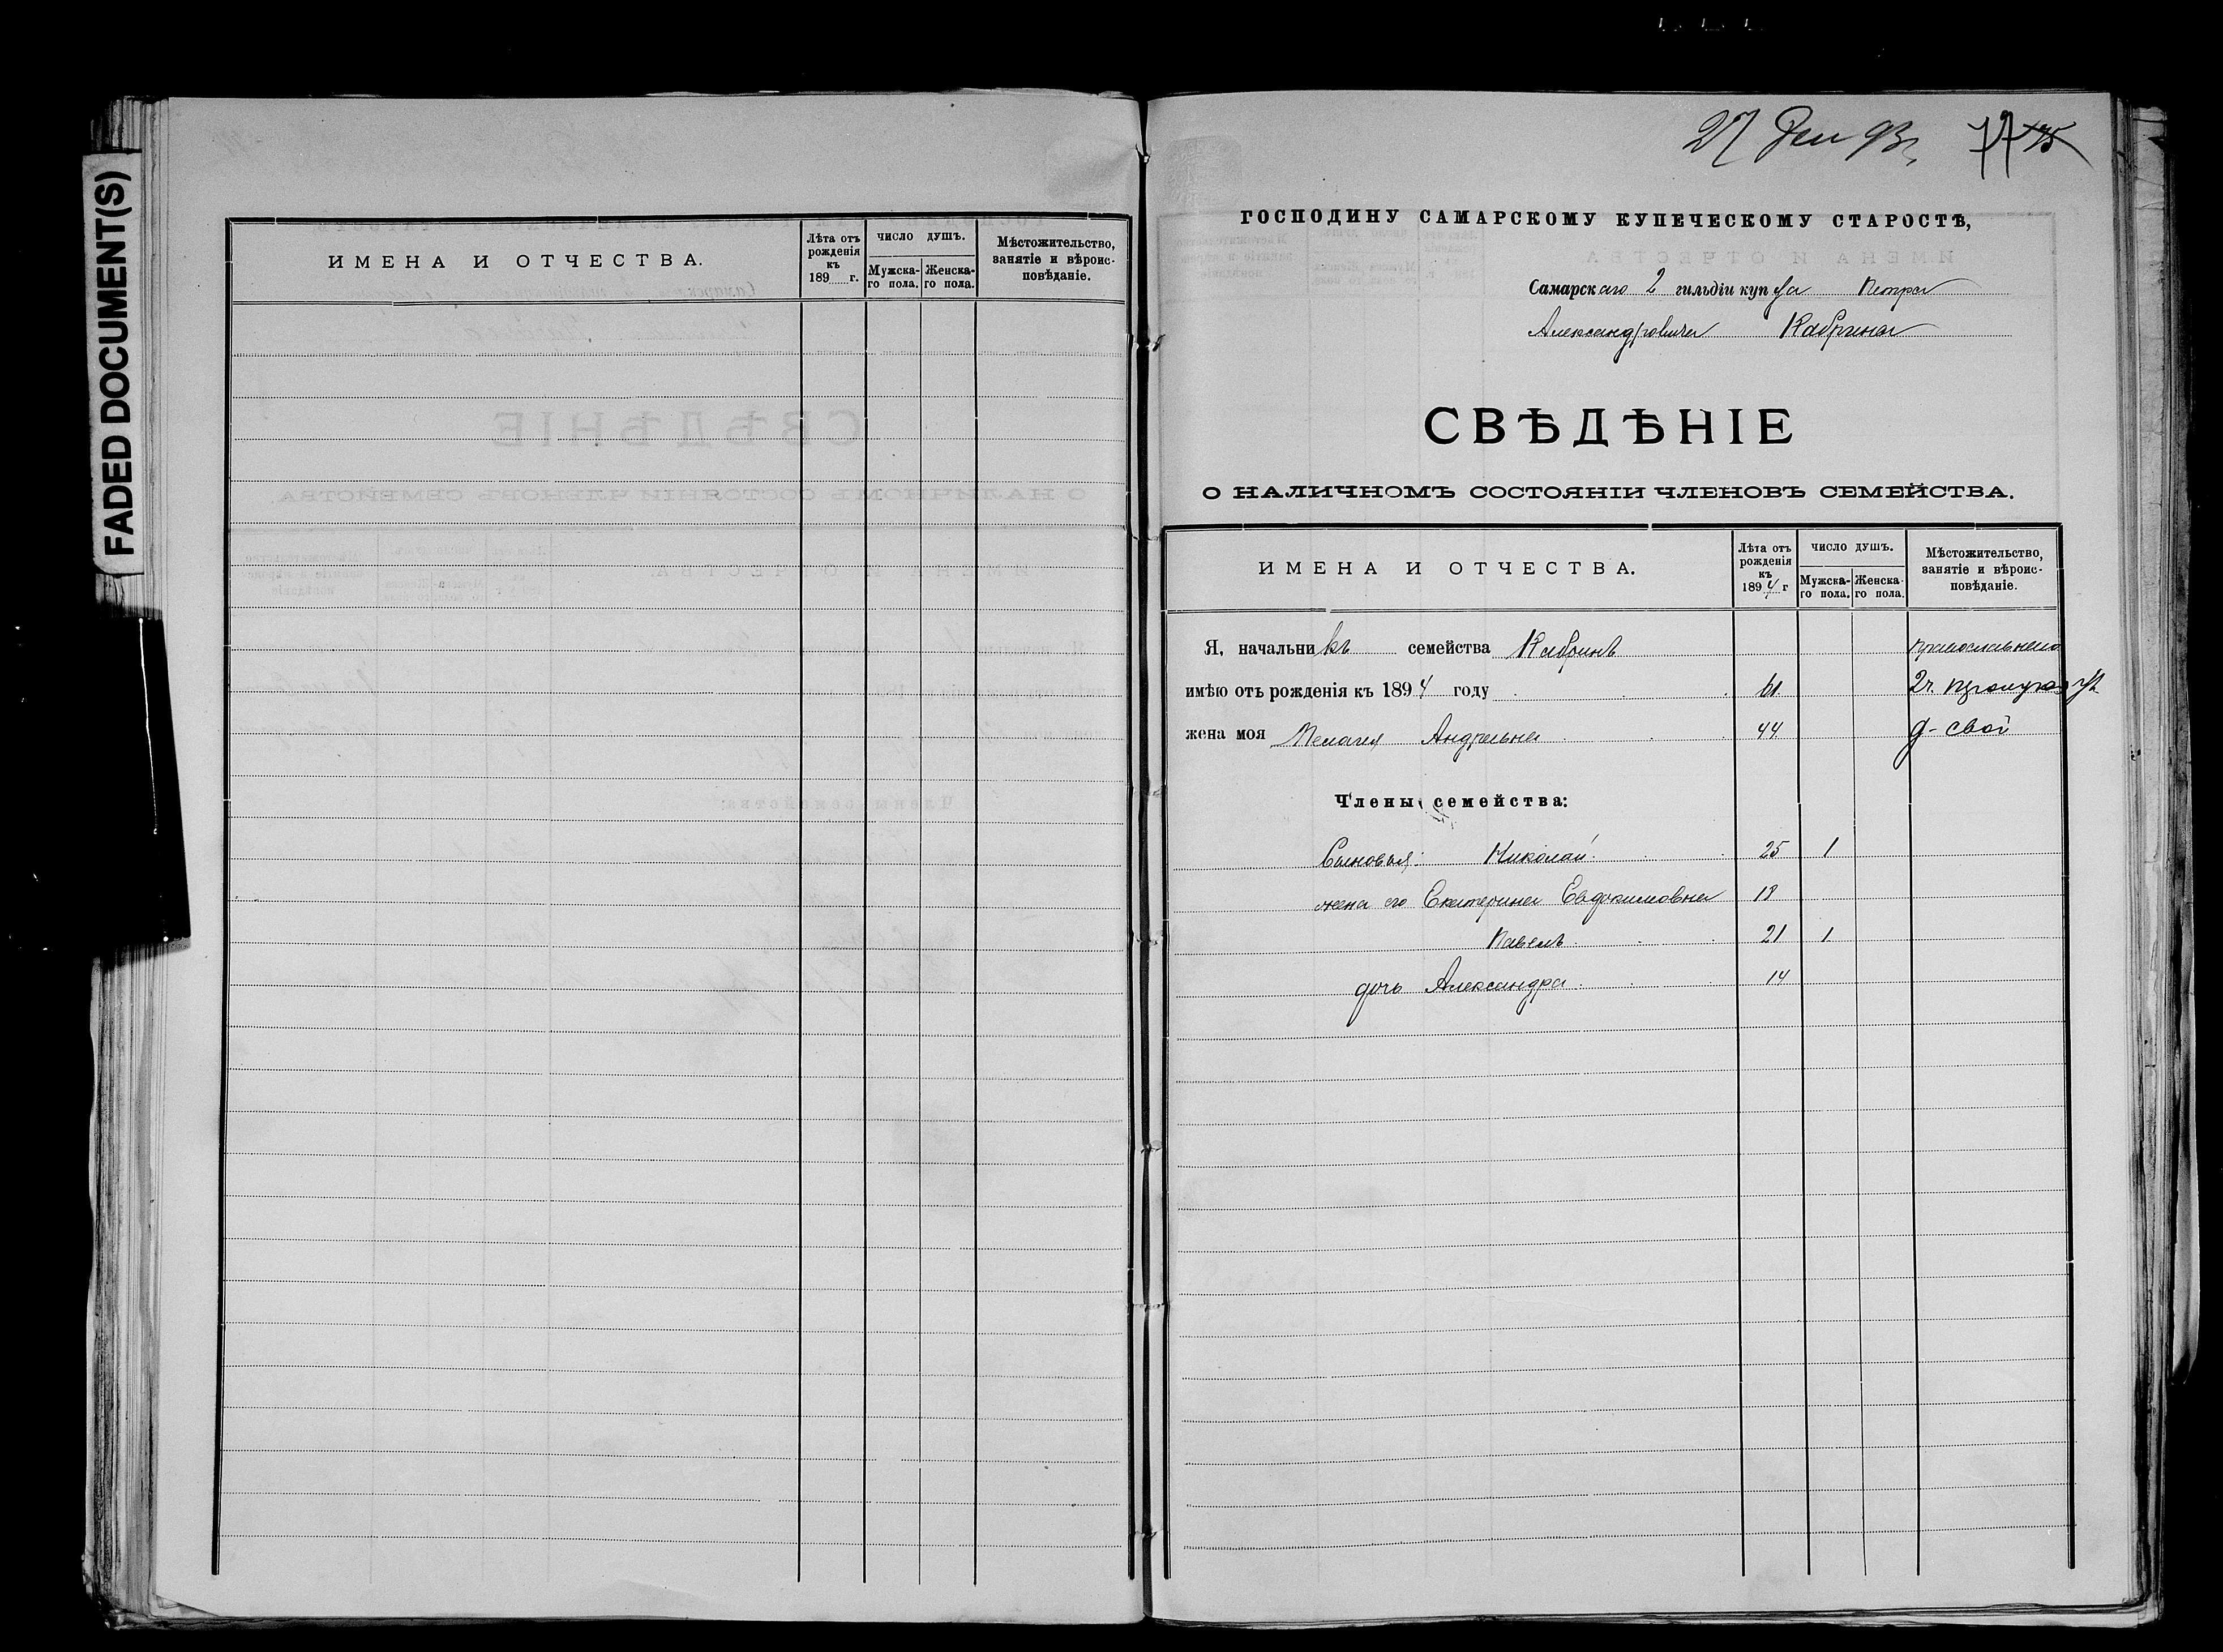 FADED DOCUMENT(S)
ИМЕНА И ОТЧЕСТВА.
Лѣта отъ рожденія къ 189 г.
ЧИСЛО ДУШЪ.
Мужска-го пола.
Женска-го пола.
Мѣстожительство, занятіе и вѣроис-повѣданіе.
27 Дек 93 г. 77 75
ГОСПОДИНУ САМАРСКОМУ КУПЕЧЕСКОМУ СТАРОСТѢ,
Самарскаго 2 гильдіи купца Петра
Александровича Кабрина
СВѢДѢНІЕ
О НАЛИЧНОМЪ СОСТОЯНІИ ЧЛЕНОВЪ СЕМЕЙСТВА.
ИМЕНА И ОТЧЕСТВА.
Лѣта отъ рожденія къ 1894 г
ЧИСЛО ДУШЪ.
Мужска-го пола.
Женска-го пола.
Мѣстожительство, занятіе и вѣроис-повѣданіе.
Я, начальникъ семейства Кабринъ
имѣю отъ рожденія къ 1894 году 61. 2ч.
жена моя Пелагея Андреевна 44 д- свой
Члены семейства:
Сыновья: Николай 25 1
жена его Екатерина Евдокимовна 18
Павелъ 21 1
дочь Александра 14